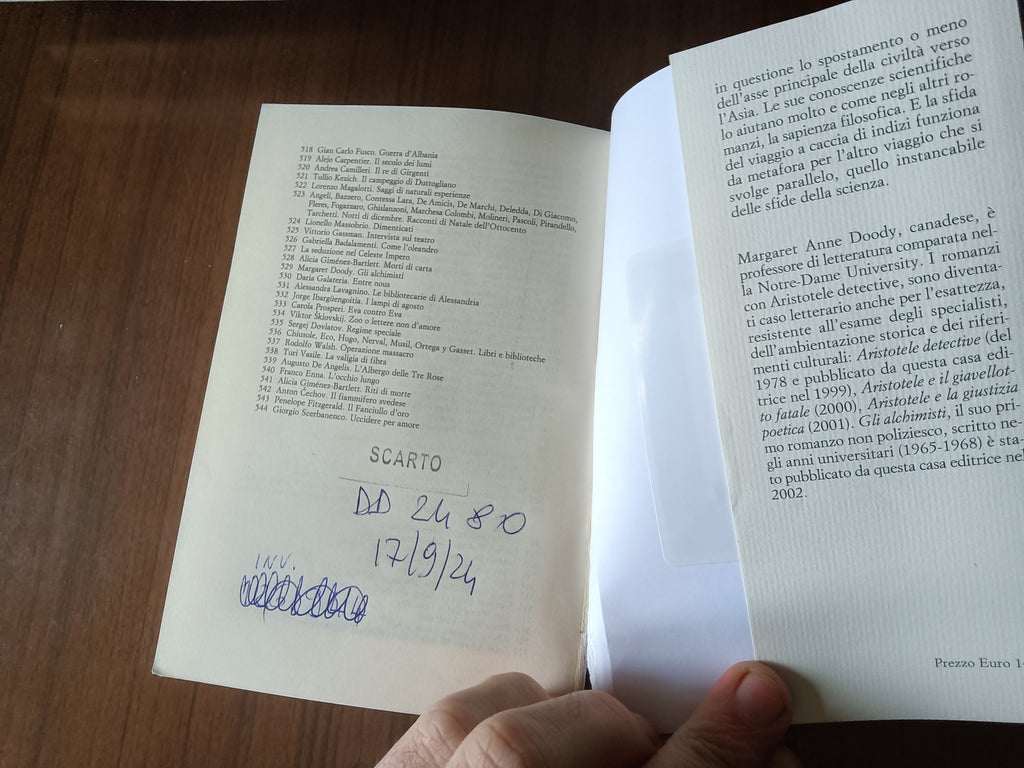 518 Gian Carlo Fusco. Guerra d'Albania
519 Alejo Carpentier. Il secolo dei lumi
520 Andrea Camilleri. Il re di Girgenti
521 Tullio Kezich. Il campeggio di Duttogliano
522 Lorenzo Magalotti. Saggi di naturali esperienze
523 Angeli, Bazzero, Contessa Lara, De Amicis, De Marchi, Deledda, Di Giacomo,
Fleres, Fogazzaro, Ghislanzoni, Marchesa Colombi, Molineri, Pascoli, Pirandello,
Tarchetti. Notti di dicembre. Racconti di Natale dell'Ottocento
524 Lionello Massobrio. Dimenticati
525 Vittorio Gassman. Intervista sul teatro
526 Gabriella Badalamenti. Come l'oleandro
527 La seduzione nel Celeste Impero
528 Alicia Giménez-Bartlett. Morti di carta
529 Margaret Doody. Gli alchimisti
530 Daria Galateria. Entre nous
531 Alessandra Lavagnino. Le bibliotecarie di Alessandria
532 Jorge Ibargüengoitia. I lampi di agosto
533 Carola Prosperi. Eva contro Eva
534 Viktor Šklovskij. Zoo o lettere non d'amore
535 Sergej Dovlatov. Regime speciale
536 Chiusole, Eco, Hugo, Nerval, Musil, Ortega y Gasset. Libri e biblioteche
537 Rodolfo Walsh. Operazione massacro
538 Turi Vasile. La valigia di fibra
539 Augusto De Angelis. L'Albergo delle Tre Rose
540 Franco Enna. L'occhio lungo
541 Alicia Giménez-Bartlett. Riti di morte
542 Anton Čechov. Il fiammifero svedese
543 Penelope Fitzgerald. Il Fanciullo d'oro
544 Giorgio Scerbanenco. Uccidere per amore
SCARTO
DD 24 80
17/9/24
INV.
in questione lo spostamento o meno
dell'asse principale della civiltà verso
l'Asia. Le sue conoscenze scientifiche
lo aiutano molto e come negli altri ro-
manzi, la sapienza filosofica. E la sfida
del viaggio a caccia di indizi funziona
da metafora per l'altro viaggio che si
svolge parallelo, quello instancabile
delle sfide della scienza.
Margaret Anne Doody, canadese, è
professore di letteratura comparata nel-
la Notre-Dame University. I romanzi
con Aristotele detective, sono diventa-
ti caso letterario anche per l'esattezza,
resistente all'esame degli specialisti,
dell'ambientazione storica e dei riferi-
menti culturali: Aristotele detective (del
1978 e pubblicato da questa casa edi-
trice nel 1999), Aristotele e il giavellot-
to fatale (2000), Aristotele e la giustizia
poetica (2001). Gli alchimisti, il suo pri-
mo romanzo non poliziesco, scritto ne-
gli anni universitari (1965-1968) è sta-
to pubblicato da questa casa editrice nel
2002.
Prezzo Euro